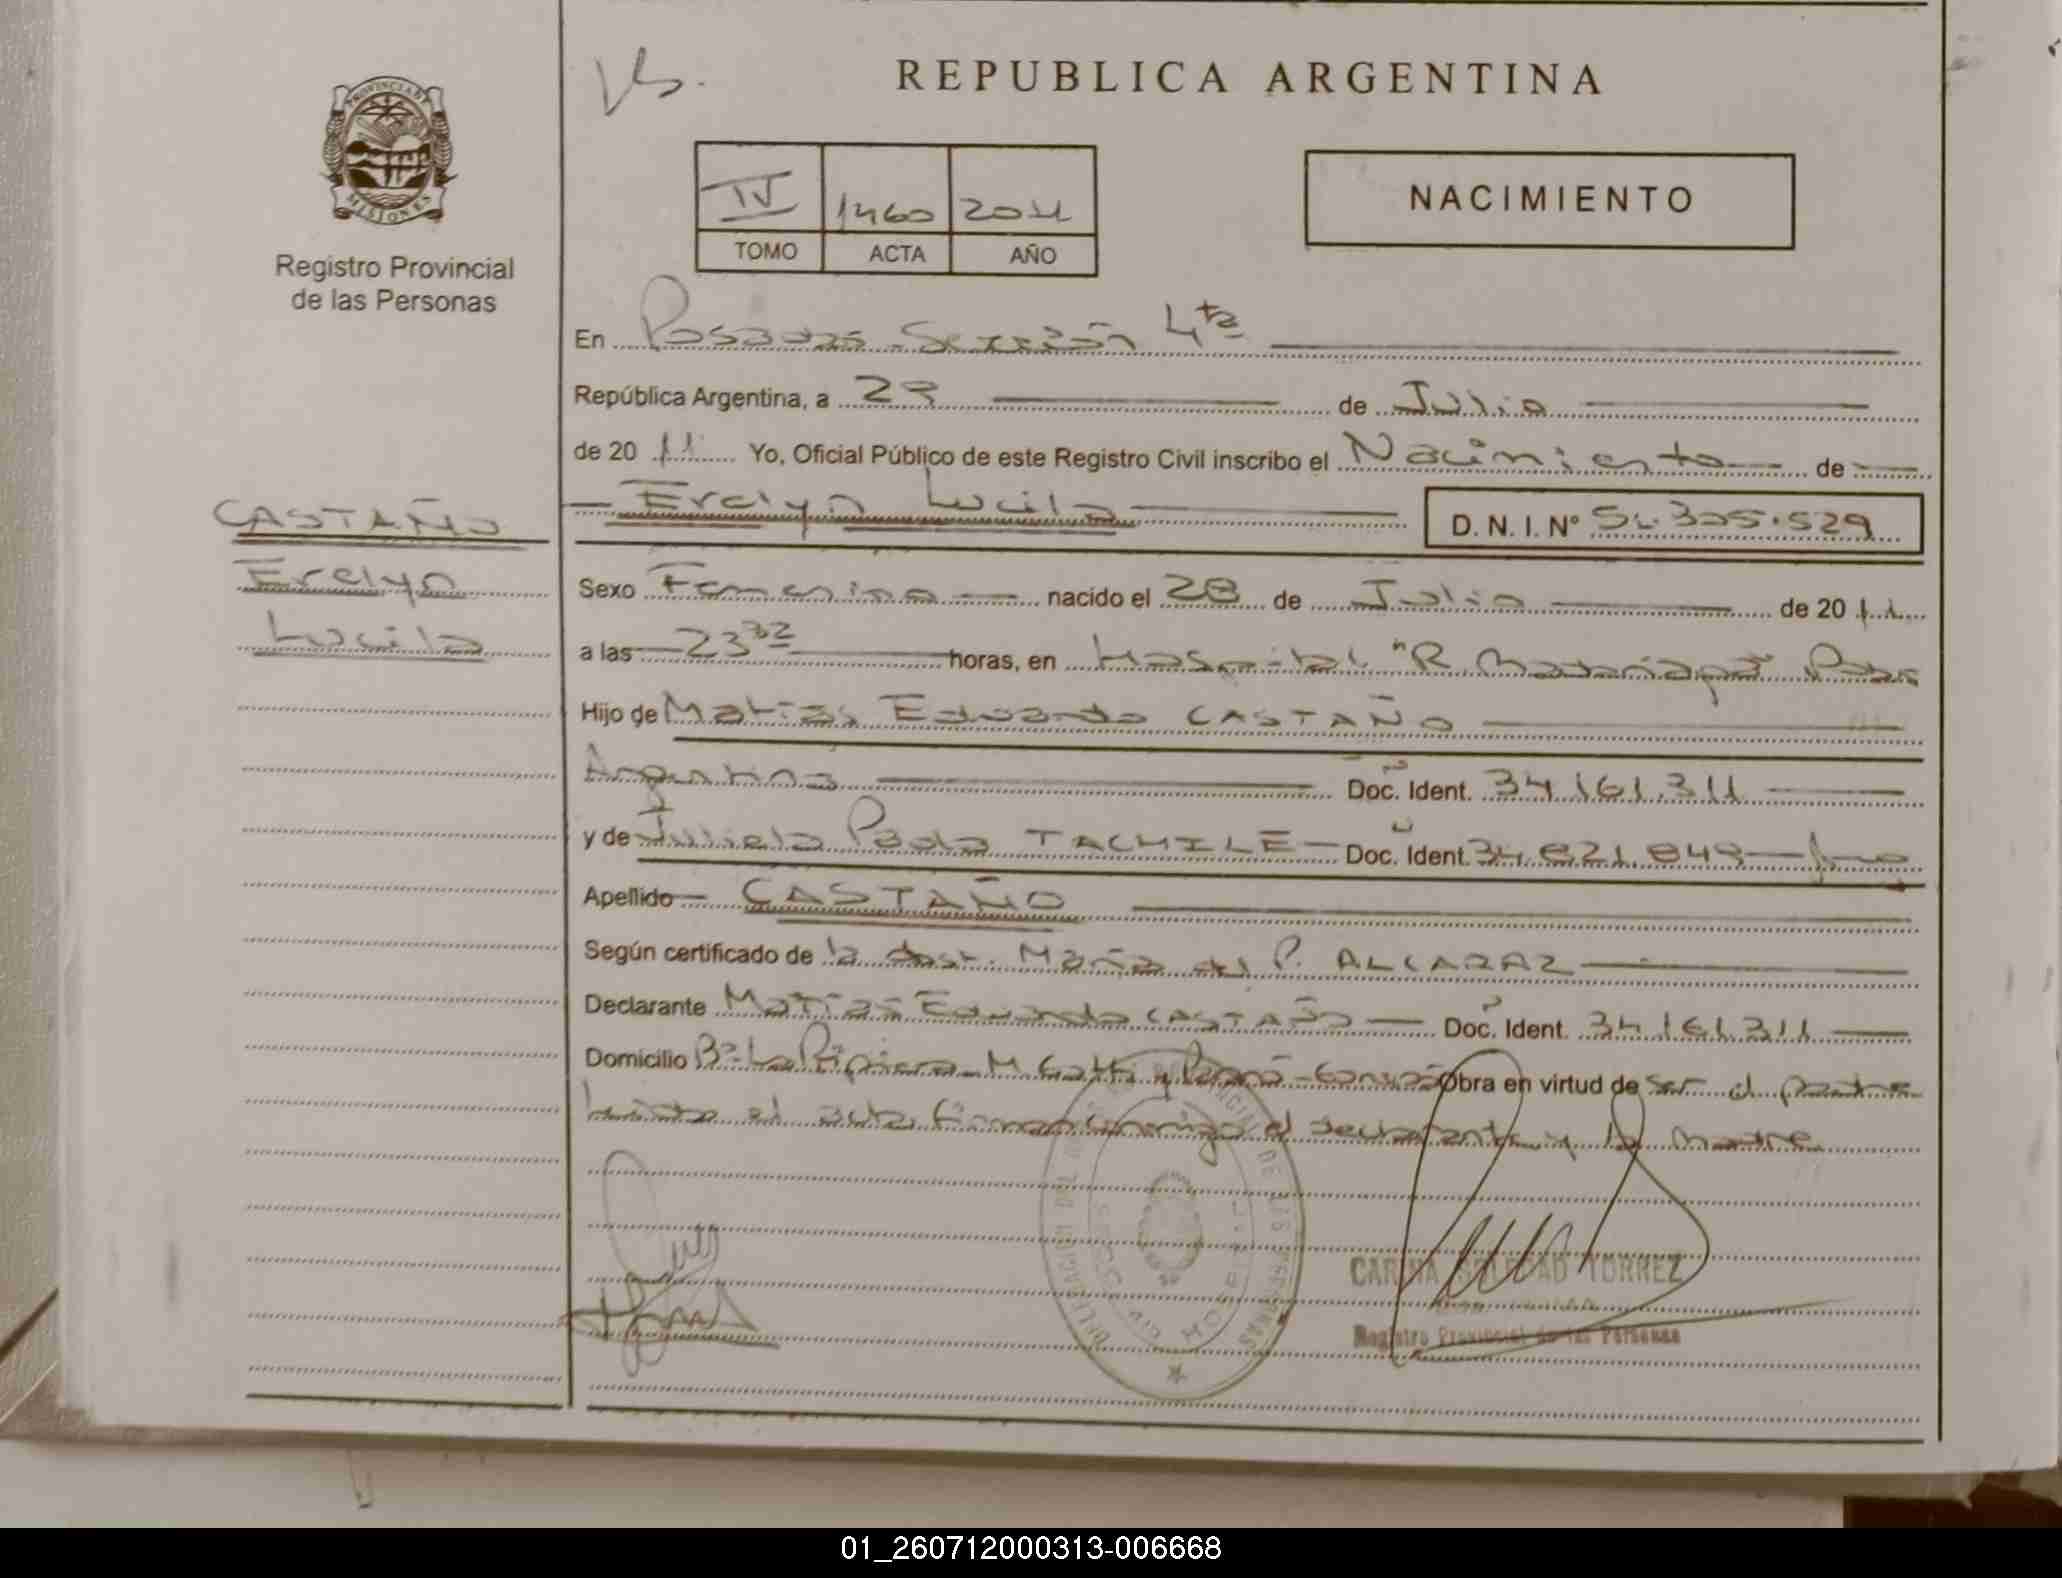 REPUBLICA ARGENTINA
PROVINCIA DE MISIONES
Registro Provincial
de las Personas
IV 1460 2011
TOMO ACTA AÑO
NACIMIENTO
En Posadas - Sección 4ta
República Argentina, a 29 de Julio
de 20 11 Yo, Oficial Público de este Registro Civil inscribo el Nacimiento de
Evelyn Lucila D. N. I. Nº 51.305.529
CASTAÑO
Evelyn
Lucila
Sexo Femenino nacido el 28 de Julio de 20 11
a las 23 32 horas, en Hospital "R. Madariaga" Pdas
Hijo de Matías Eduardo CASTAÑO
Argentina Doc. Ident. 34.161.311
y de Julieta Paola TACHILE Doc. Ident. 34.821.849
Apellido CASTAÑO
Según certificado de la obst. María del P. ALCARAZ
Declarante Matías Eduardo CASTAÑO Doc. Ident. 34.161.311
Domicilio Bº La Ripiera - M Gatti y Perón - Garupá Obra en virtud de ser el padre
leída el acta firman conmigo el declarante y la madre
DELEGACION DEL REGISTRO PROVINCIAL DE LAS PERSONAS
CARINA SOLEDAD TORREZ
Registro Provincial de las Personas
01_260712000313-006668